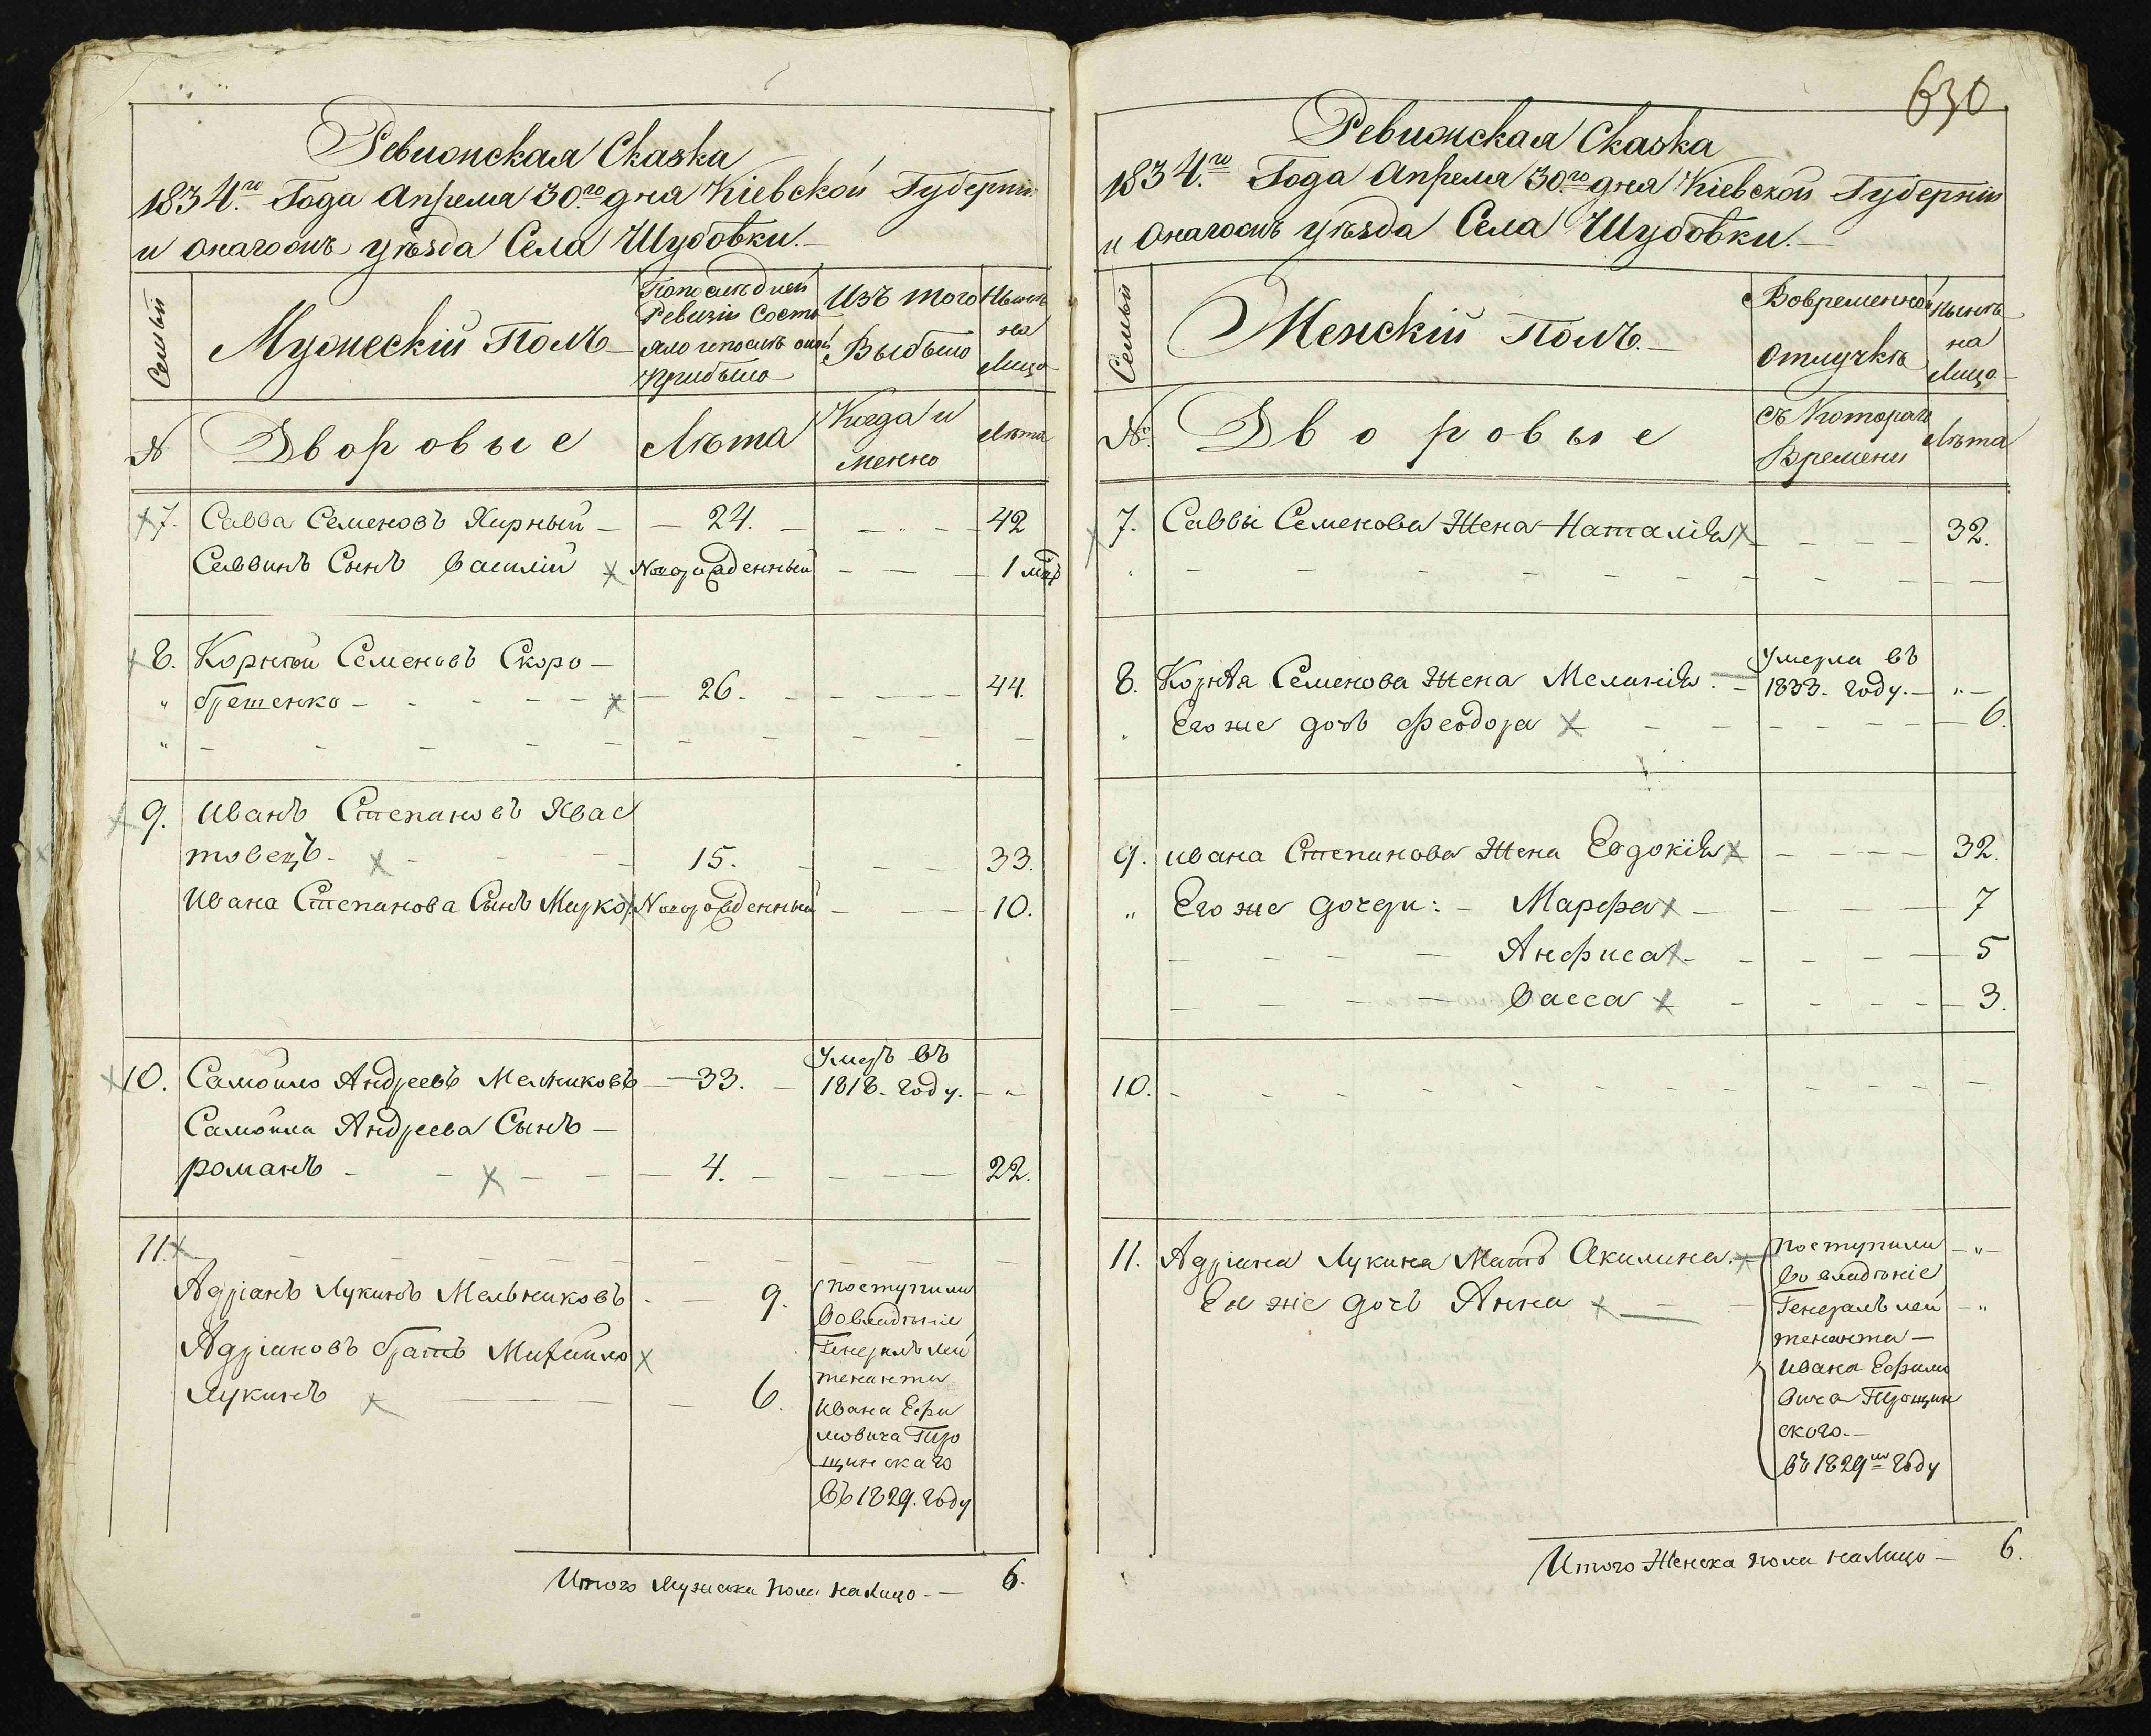 Ревижская Сказка
1834.го Года Апреля 30.го дня Кіевской Губерніи
и Онагожъ уѣзда Села Шубовки.
Семьи
Мужескій Полъ
Попослѣдней
Ревизіи Состо
яло ипослѣ оной
Прибыло
Изъ того
Выбыло
Нынѣ
на
Лицо
№
Дворовые
Лѣта
Когда и
менно
Лѣта
7. Савва Семеновъ Жирный — 24. — 42
Саввинъ Сынъ Василий Новорожденный — 1 мѣц
8. Корнѣй Семеновъ Скоро—
брешенко — 26 — 44.
9. Иванъ Степановъ Хвас
товецъ — 15. — 33.
Ивана Степанова Сынъ Марко Новорожденный — 10.
10. Самойло Андреевъ Мельниковъ — 33. — Умеръ въ
1818. году. — „
Самойла Андреева Сынъ —
романъ — 4. — 22.
11.
Адріанъ Лукинъ Мельниковъ — 9.
Адріановъ братъ Михайло
Лукинъ — 6.
поступили
Вовладѣніе
Генералъ лей
тенанта
Ивана Ефи
мовича Тро
щинскаго
Въ 1829. году
Итого Мужеска пола налицо — 6.
630
Ревижская Сказка
1834.го Года Апреля 30.го дня Кіевской Губерніи
и Онагожъ уѣзда Села Шубовки.
Семьи
Женскій Полъ.
Вовременной
Отлучкѣ
Нынѣ
на
Лицо
№.
Дворовые
съ Котораго
Времени
Лѣта
7. Саввы Семенова Жена Наталія — 32.
8. Корнѣя Семенова Жена Меланія. — Умерла въ
1833. году. — „
„ Его же дочь Феодора — 6.
9. ивана Степанова Жена Евдокія — 32.
„ Его же дочери: — Марфа — 7
Анфиса — 5
Васса — 3.
10.
11. Адріана Лукина Мать Акилина. — „
Ея же дочь Анна — „
поступили
Во владѣніе
Генералъ лей
тенанта —
Ивана Ефимо
вича Трощин
ского. —
Въ 1829м году
Итого Женска пола налицо — 6.